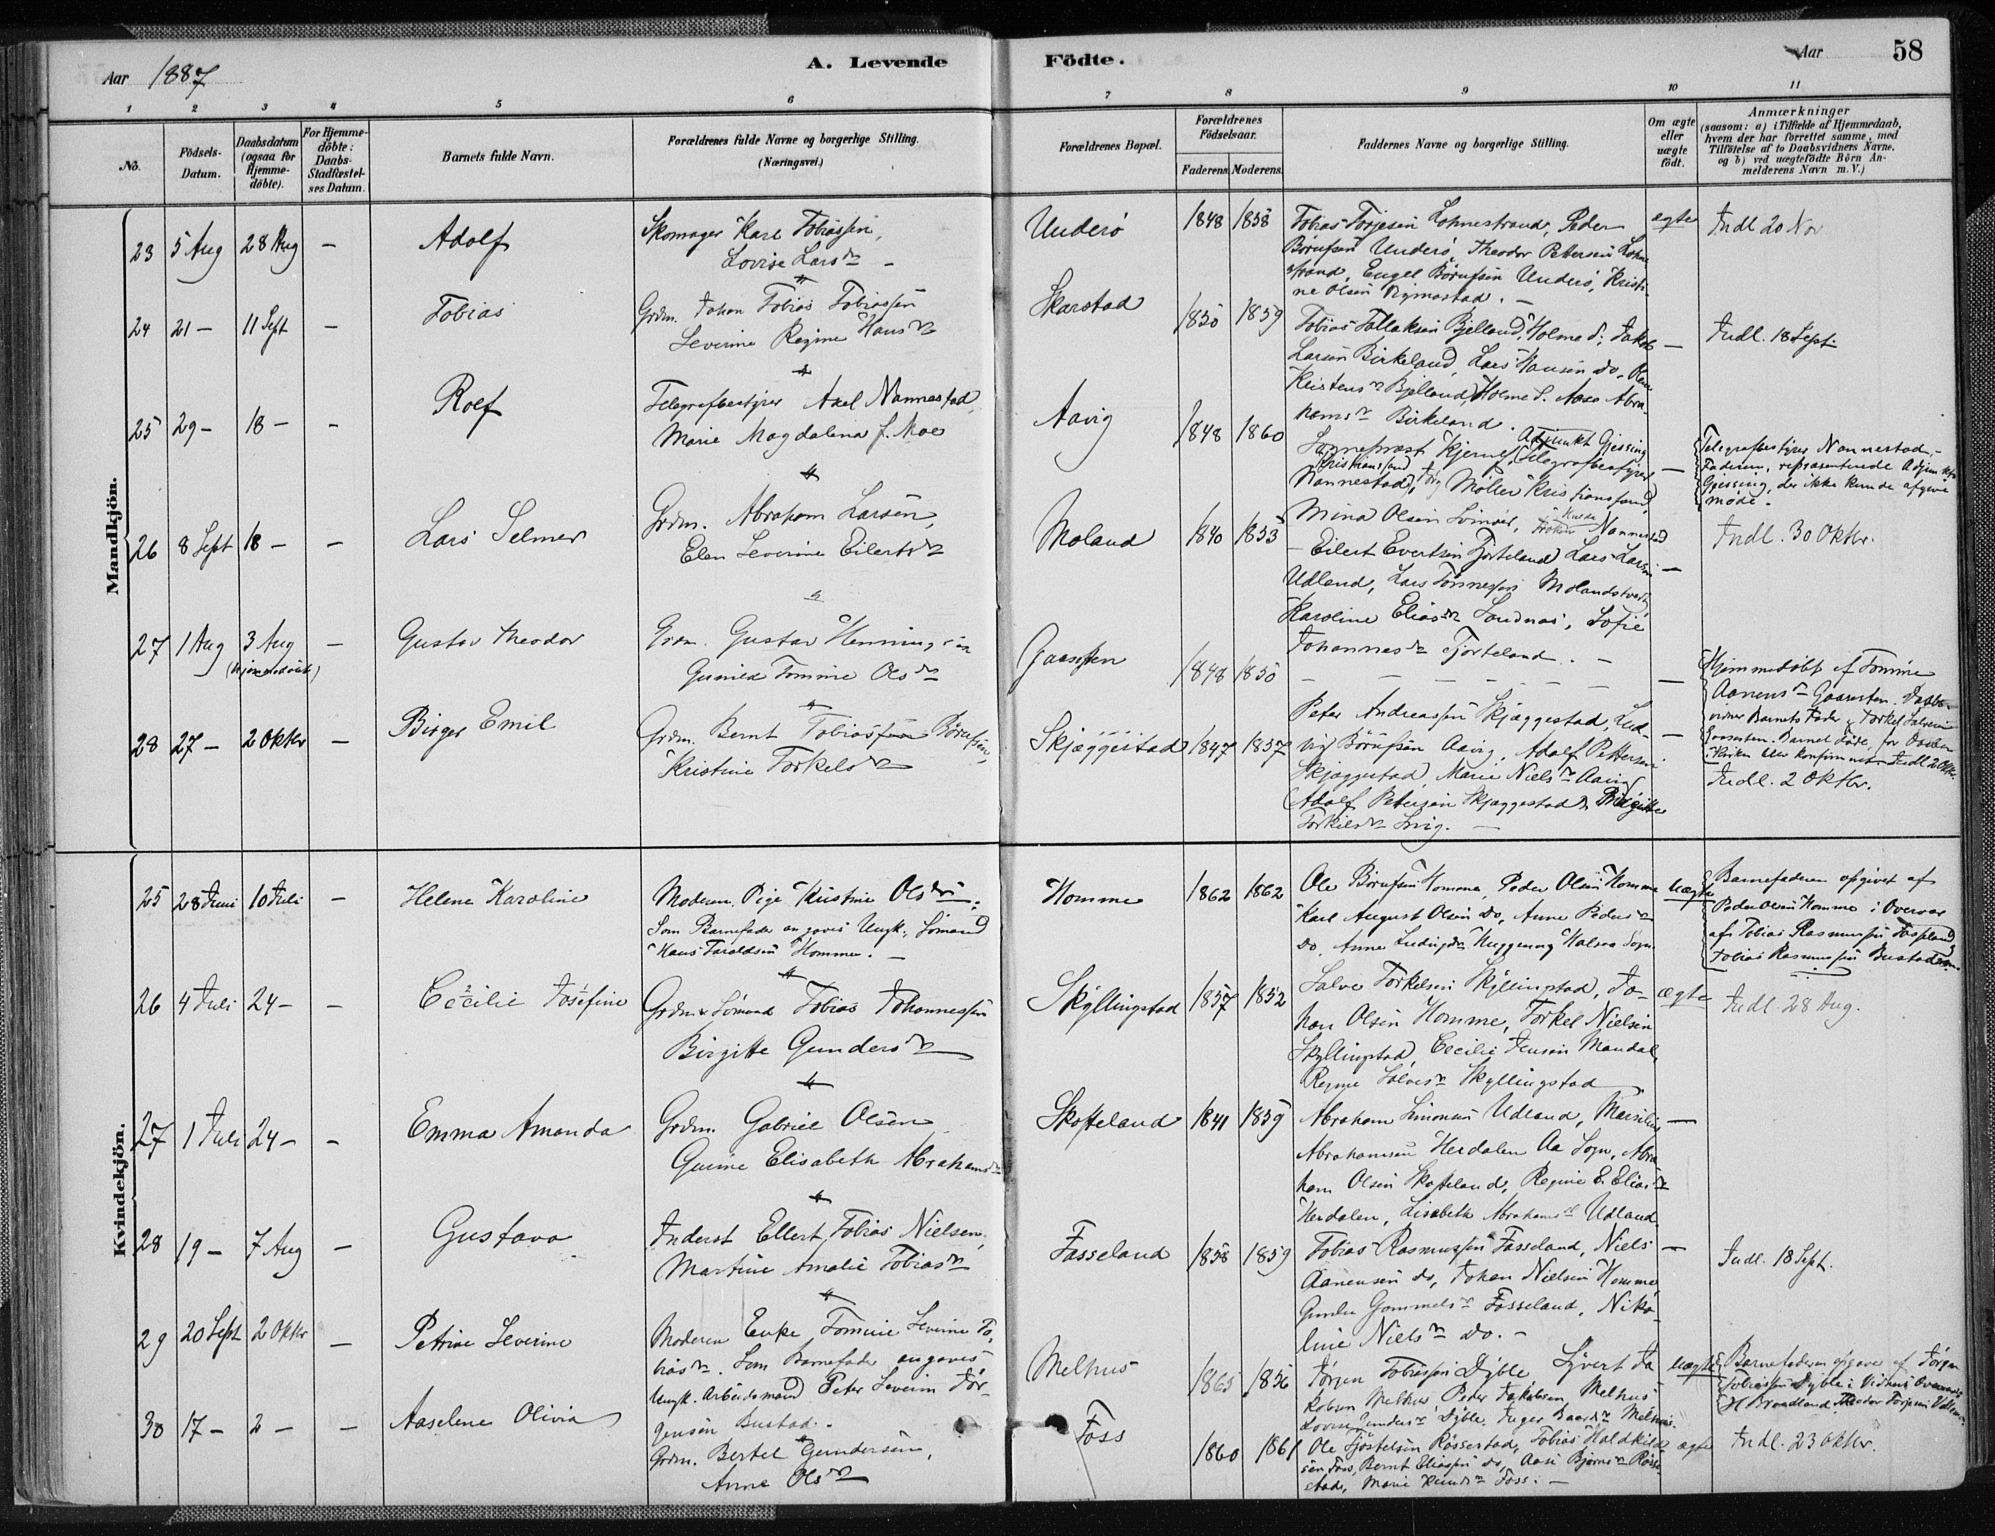 Aar 1887
A. Levende Födte.
Aar 58
1 2 3 4 5 6 7 8 9 10 11
No.
Födsels-Datum.
Daabsdatum (ogsaa for Hjemme-döbte).
For Hjemme-döbte: Daabs-Stadfæstel-ses Datum.
Barnets fulde Navn.
Forældrenes fulde Navne og borgerlige Stilling.
(Næringsvei.)
Forældrenes Bopæl.
Forældrenes Födselsaar.
Faderens. Moderens.
Faddernes Navne og borgerlige Stilling.
Om ægte eller uægte födt.
Anmærkninger
(saasom: a) i Tilfælde af Hjemmedaab, hvem der har forrettet samme, med Tilföielse af to Daabsvidners Navne, og b) ved uægtefödte Börn An-melderens Navn m. V.)
Mandkjön.
23 5 Aug 28 Aug - Adolf
Skomager Karl Tobiassen,
Lovise Larsdr -
Underö 1848 1858
Tobias Torjesen Lohnestrand, Peder
Börufsen Underö, Theodor Pettersen Lohne
strand, Engel Börufsen Underö, Kristi-
ne Olsen Vigmostad. -
ægte Indl 20 Nov
24 21 - 11 Sept - Tobias
Grdm. Johan Tobias Tobiassen
Severine Regine Hansdr
Skarstad 1850 1859
Tobias Tallaksen Bjelland, Holme S; Jakob
Larsen Birkeland, Lars Hansen do,
Kristensdr Bjelland, Holme S. Aase Abra-
hamsdr Birkeland.
- Indl. 18 Sept.
25 29 - 18 - - Rolf
Telegrafbestyrer Axel Nannestad,
Marie Magdalena f. Moe
Aavig 1848 1860
Sogneprest Kjerne, Adjunkt Gjessing
Kristianssand, Telegrafbestyrer
Nannestad, Møller Kristianssand,
Mina Olsen, Nannestad
- Telegrafbestyrer Nannestad,
Faderen, repræsenterede Adjunkt
Gjessing, der ikke kunde afgive
møde.
26 8 Sept 18 - - Lars Selmer
Grdm. Abraham Larsen,
Elen Severine Eilertsdr
Moland 1840 1853
Eilert Evertsen Fjorteland Lars Larsen
Udland, Lars Tønnessen Molandstvedt
Karoline Eliasdr Sondnas, Sofie
Johannesdr Fjorteland. -
- Indl. 30 Oktbr.
27 1 Aug 3 Aug (Hjemmedöbt) - Gustav Theodor
Grdm. Gustav Henningsen
Gunild Tomine Olsdr
Gaasesten 1848 1850
- - - - - -
- Hjemmedöbt af Tomine
Aanensdr Gaasesten. Daabs-
vidner Barnets Fader & Torkel
Gaasesten. Barnet döde, før Daaben
i Kirken blev konfirmeret. Indl 2 Oktbr.
28 27 - 2 Oktbr - Birger Emil
Grdm. Bernt Tobias Börufsen,
Kristine Torkelsdr
Skjæggestad 1847 1857
Peter Andreassen Skjæggestad, Lud-
vig Börufsen Aavig, Adolf Pettersen
Skjæggestad, Marie Nielsdr Aavig
(Adolf Petersen Skjæggestad), Birgitte
Torkelsdr
- Indl. 2 Oktbr.
Kvindekjön.
25 28 Juni 10 Juli - Helene Karoline
Moderen. Pige Kristine Olsdr.
Som Barnefader angaves Ungk. Sömand
Hans Taraldsen Homme. -
Homme 1862 1862
Ole Börufsen Homme, Peder Olsen Homme
Karl August Olsen do, Anne Pedersdr
do, Anne Ludvigsdr Holme Sogn
Uægte Barnefaderen opgivet af
Peder Olsen Homme i Overvær
af Tobias Rasmussen Fasseland
Tobias Rasmussen Bustad
26 4 Juli 24 - - Cecilie Josefine
Grdm & Sömand Tobias Johannessen
Birgitte Gundersdr
Skyllingstad 1857 1852
Salve Torkelsen Skyllingstad, Jo-
han Olsen Homme, Torkel Nielsen
Skyllingstad, Cecilie Jensen Mandal,
Regine Salvesdr Skyllingstad
ægte Indl. 28 Aug.
27 1 Juli 24 - - Emma Amanda
Grdm. Gabriel Olsen
Gurine Elisabeth Abrahamsdr
Skofteland 1841 1859
Abraham Simonsen Udland, Marselius
Abrahamsen Herdalen Aa Sogn, Abra
ham Olsen Skofteland, Regine E. Eliasdr
Herdalen, Lisabeth Abrahamsdr Udland.
-
28 19 - 7 Aug - Gustava
Inderst Ellert Tobias Nielsen,
Martine Amalie Tobiasdr
Fasseland 1858 1859
Tobias Rasmussen Fasseland, Niels
Aanensen do, Johan Nielsen Homme,
Gunda Gommelsdr Fasseland, Niko-
line Nielsdr do. -
- Indl. 18 Sept.
29 20 Sept 2 Oktbr - Petrine Severine
Moderen Enke Tomine Severine To-
biasdr. Som Barnefader angaves
Ungk. Arbeidsmand Peter Severin Jör-
gensen Bustad.
Melhus 1865 1856
Jörgen Tobiassen Dyble, Syvert Ja
kobsen Melhus, Peder Jakobsen Melhus
Lovise Gundersdr Dyble. Inger Baardsdr Melhus.
Uægte Barnefaderen opgaves af Jörgen
Tobiassen Dyble i Vidners Overvær
30 17 - 2 - - Aaselene Olivia
Grdm. Bertel Gundersen,
Anne Olsdr
Foss 1860 1861
Ole Fjöstelsen Rössestad, Tobias
sen Foss, Bernt Eliassen do, Aase Björnsdr Rösse
stad, Marie Foss. -
ægte Indl. 23 Oktbr.